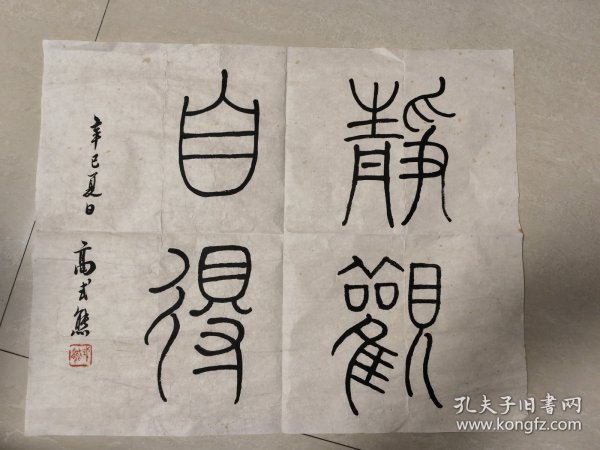 靜觀
自得
辛巳夏日
高式熊
孔夫子旧書网
www.kongfz.com